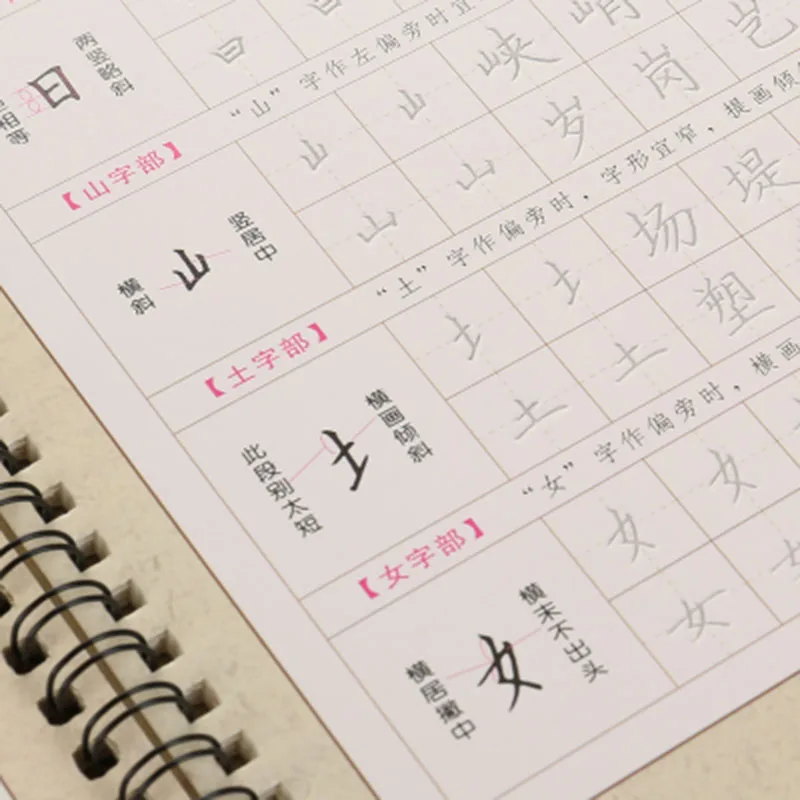 日
两竖略斜
相等
日
【山字部】
“山”字作左偏旁时宜
山
竖居中
横斜
山 山 峡 峭
山 山 岁 岗 岂
【土字部】
“土”字作偏旁时，字形宜窄，提画倾
土
横画倾斜
此段别太短
土 土 场 堤
土 土 塑
【女字部】
“女”字作偏旁时，横画
女
横末不出头
横居撇中
女 女
女